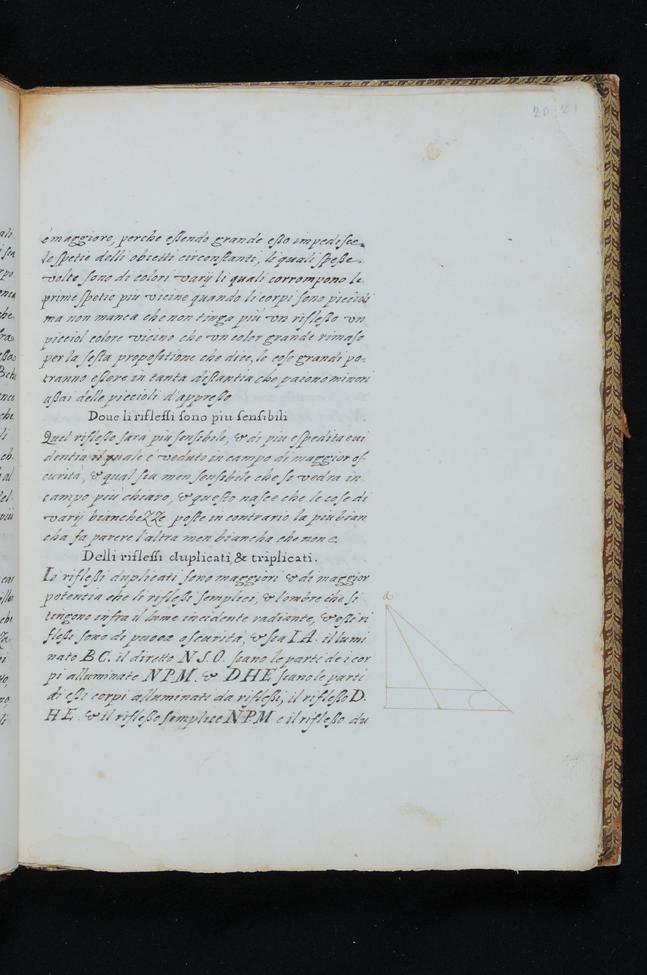 20 21
è maggiore, perche essendo grande esso impedisce
le spetie delli obietti circonstanti, le quali spesse
volte sono di colori varij li quali corrompono le
prime spetie più vicine quando li corpi sono piccioli
ma non manca che non tinga più un riflesso un
picciol colore vicino che un color grande rimoso
per la sesta propositione che dice, le cose grandi po-
tranno essere in tanta distantia che paiono minori
assai delle piccioli d'appresso
Doue li riflessi sono piu sensibili
Quel riflesso sarà più sensibile, & di piu espedita eui
dentia il quale è veduto in campo di maggior os-
curità, & qual sia men sensibile che se vedra in
campo più chiaro, & questo nasce che le cose di
varij bianchezze poste in contrario la piu bian
cha fa parere l'altra men biancha che non e
Delli riflessi duplicati & triplicati.
Li riflessi duplicati sono maggiori & di maggior
potentia che li riflessi semplici, & l'ombre che si
tingono infra il lume incidente radiante, & essi ri
flessi sono di puoca oscurità, & sia I A. il lumi
nato B C. il diretto N S O. siano le parti de i cor
pi alluminate N P M. & D H E siano le parti
di essi corpi alluminati da riflessi, il riflesso D.
H E. & il riflesso semplice N P M e il riflesso du
a